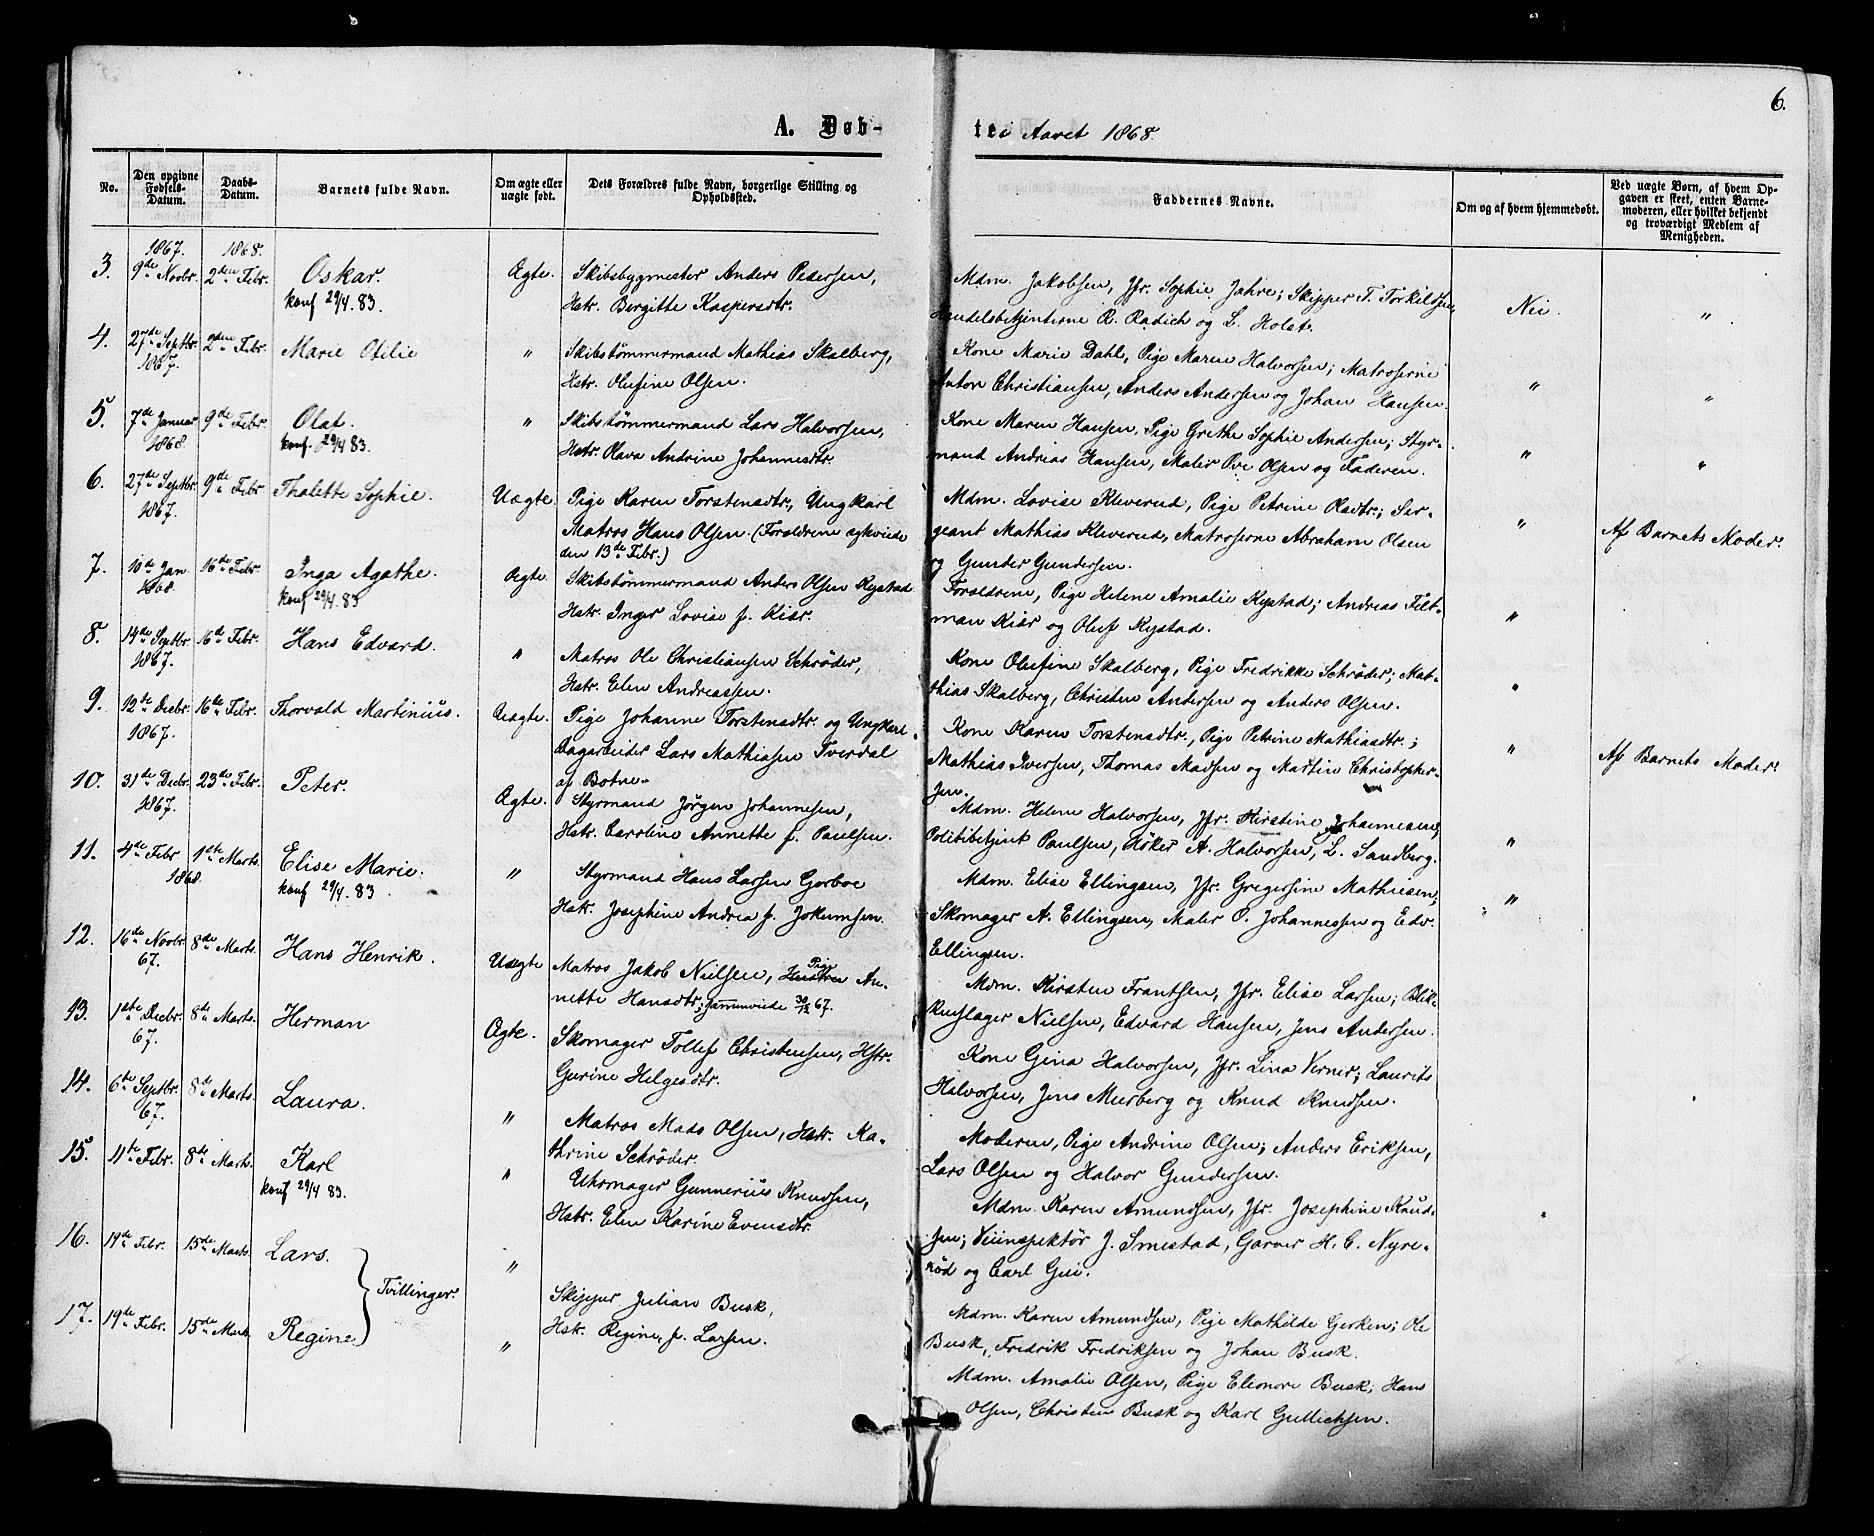 6.
A. Døb-
te i Aaret 1868.
No.
Den opgivne Fødsels-Datum.
Daabs-Datum.
Barnets fulde Navn.
Om ægte eller uægte født.
Dets Forældres fulde Navn, borgerlige Stilling og Opholdssted.
Faddernes Navne.
Om og af hvem hjemmedøbt.
Ved uægte Børn, af hvem Opgaven er skeet, enten Barnemoderen, eller hvilket bekjendt og troværdigt Medlem af Menigheden.
1867. 1868.
3. 9de Novbr. 2den Febr. Oskar. Ægte. Skibsbygmester Anders Pedersen,
konf 29/4.83. Hstr. Bergitte Kaspersdtr.
Mdm. Jakobsen, Jfr. Sophie Jahre; Skipper T. Torkildsen,
Handelsbetjenterne R. Radich og L. Holst. Nei. "
4. 27de Septbr. 2den Febr. Marie Otilie " Skibstømmermand Mathias Skalberg,
1867. Hstr. Olufine Olsen.
Kone Marie Dahl, Pige Maren Halvorsen; Matroserne
Anton Christiansen, Anders Andersen og Johan Hansen. " "
5. 7de Januar 9de Febr. Olaf. " Skibstømmermand Lars Halvorsen,
1868. konf. 29/4 83. Hstr. Olava Andrine Johannesdtr.
Kone Maren Hansen, Pige Grethe Sophie Andersen; Styr-
mand Andrias Hansen, Maler Ove Olsen og Faderen. " "
6. 27de Septbr. 9de Febr Thalette Sophie. Uægte. Pige Karen Torstensdtr., Ungkarl
1867. Matros Hans Olsen. (Forældrene ægteviede
den 13de Febr.)
Mdm. Lovise Kleverud, Pige Petrine Olsdtr.; Ser-
geant Mathias Kleverud, Matroserne Abraham Olsen
og Gunder Gundersen. " Af Barnets Moder.
7. 10de Jan 16de Febr Inga Agathe. Ægte. Skibstømmermand Anders Olsen Rystad
1868. konf 29/4 83 Hstr. Inger Lovise f. Kiær.
Forældrene, Pige Helene Amalie Rystad; Andreas Felt-
man Kiær og Oluf Rystad. "
8. 14de Septbr. 16de Febr. Hans Edvard. " Matros Ole Christiansen Schrøder,
1867. Hstr. Elen Andreassen.
Kone Olufine Skalberg, Pige Fredrikke Schrøder; Mat-
thias Skalberg, Christen Andersen og Anders Olsen. "
9. 12te Decbr. 16de Febr. Thorvald Martinius. Uægte. Pige Johanne Torstensdtr. og Ungkarl
1867. Dagarbeider Lars Mathiasen Tverdal
af Botne.
Kone Karen Torstensdtr., Pige Petrine Mathiasdtr.;
Mathias Iversen, Thomas Madsen og Martin Christopher-
sen. " Af Barnets Moder.
10. 31te Decbr. 23de Febr. Peter. Ægte. Styrmand Jørgen Johannesen,
1867. Hstr. Caroline Annette f. Paulsen.
Mdm. Helene Halvorsen, Jfr. Kirstine Johannesen,
Politibetjent Paulsen, Høker A. Halvorsen, L. Sandberg. "
11. 4de Febr 1ste Marts. Elise Marie. " Styrmand Hans Larsen Gorboe
1868. konf 29/4 83. Hstr. Josephine Andrea f. Jokumsen.
Mdm. Elise Ellingsen, Jfr. Gregersine Mathiesen;
Skomager A. Ellingsen, Maler O. Johannessen og Edv.
Ellingsen. "
12. 16de Novbr 8de Marts. Hans Henrik. Uægte Matros Jakob Nielsen, Pige An-
67. nette Hansdtr; sammenviede 30/12 67.
Mdm. Kirsten Frantsen, Jfr. Elise Larsen; Blik-
kenslager Nielsen, Edvard Hansen, Jens Andersen.
13. 1ste Decbr. 8de Marts. Herman Ægte. Skomager Tollef Christensen, Hstr.
67. Gurine Helgesdtr.
Kone Gina Halvorsen, Jfr. Lina Verner; Laurits
Halvorsen, Jens Meerberg og Knud Knudsen.
14. 6te Septbr. 8de Marts. Laura. " Matros Mads Olsen, Hstr. Ka-
67. thrine Schrøder.
Moderen, Pige Andrine Olsen; Anders Eriksen,
Lars Olsen og Halvor Gundersen.
15. 11te Febr. 8de Marts. Karl " Uhrmager Gunnerius Knudsen,
konf 29/4 83. Hstr. Elen Karine Evensdtr.
Mdm. Karen Amundsen, Jfr. Josephine Knud-
sen; Veiinspektør J. Smestad, Garver H. C. Nyre-
rød og Carl Gui.
16. 19de Febr. 15de Marts Lars. Tvillinger. " Skipper Julian Busk,
Hstr. Regine, f. Larsen.
Mdm. Karen Amundsen, Pige Mathilde Gerken; Ole
Busk, Fredrik Fredriksen og Johan Busk.
17. 19de Febr. 15de Marts Regine. "
Mdm. Amalie Olsen, Pige Eleonore Busk; Hans
Olsen, Christen Busk og Karl Gullichsen.